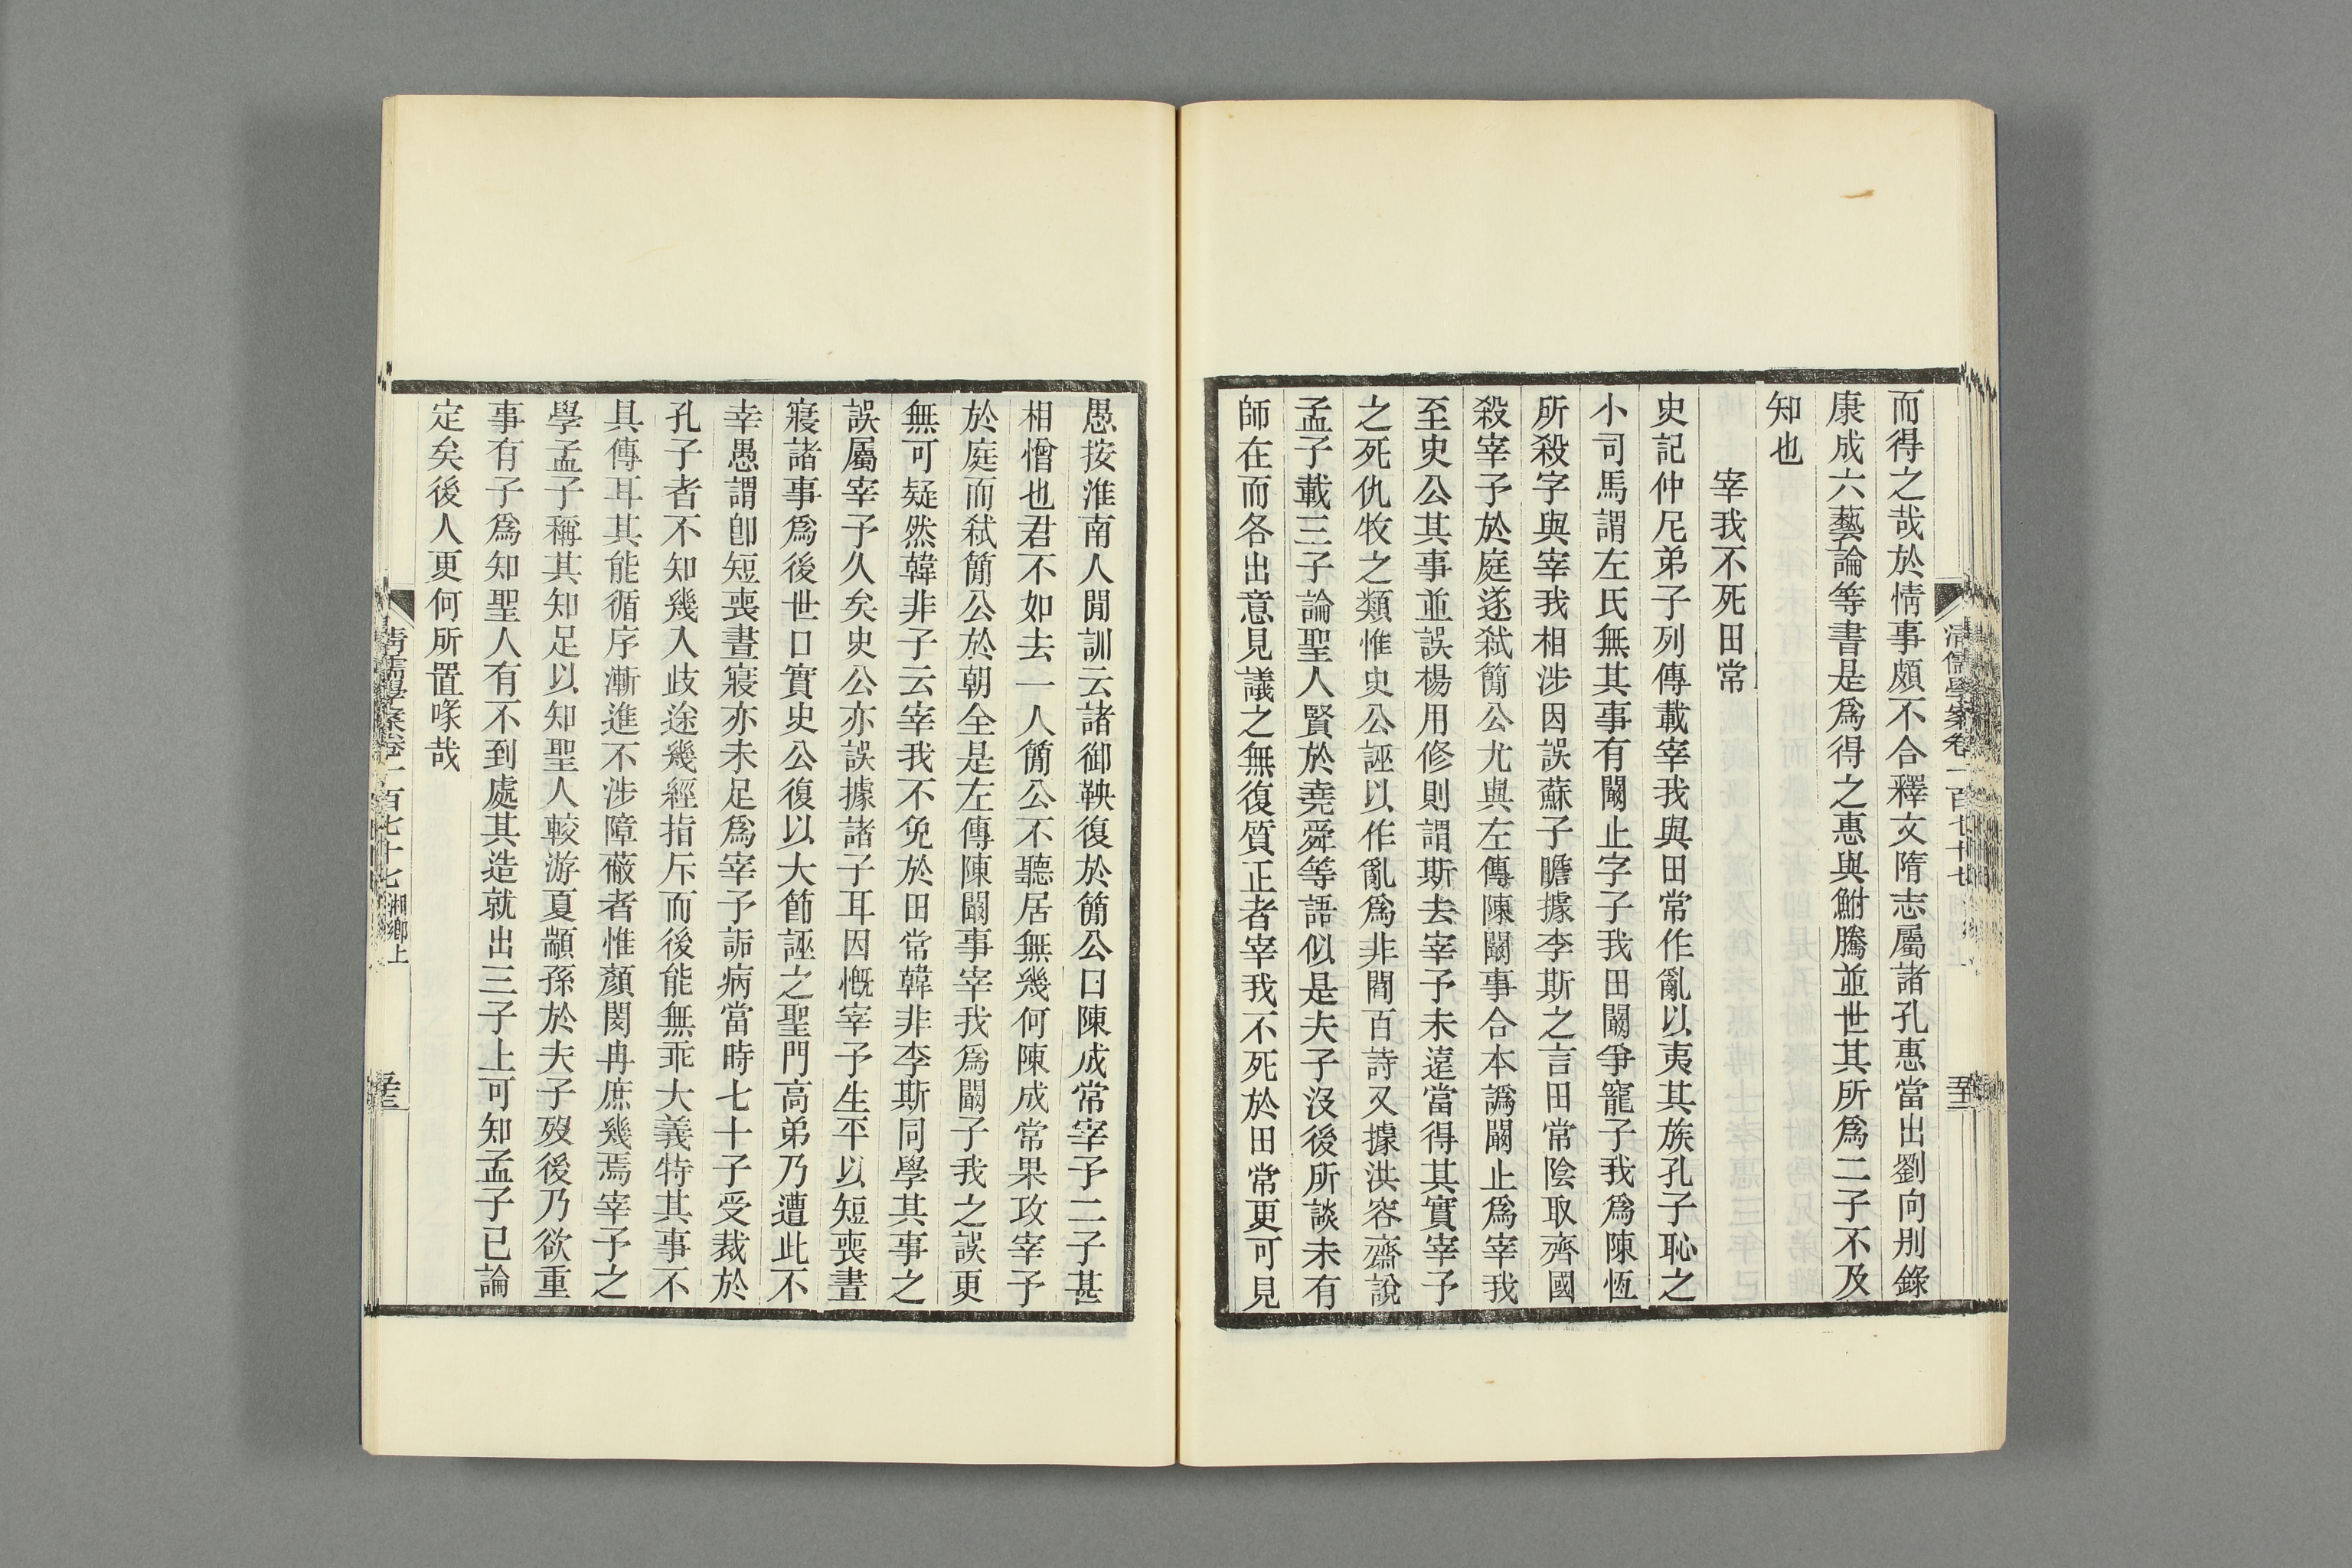 而得之哉於情事頗不合釋文隋志屬諸孔惠當出劉向別錄
康成六藝論等書是爲得之惠與鮒騰並世其所爲二子不及
知也
宰我不死田常
史記仲尼弟子列傳載宰我與田常作亂以夷其族孔子恥之
小司馬謂左氏無其事有闞止字子我田闞爭寵子我爲陳恆
所殺字與宰我相涉因誤蘇子瞻據李斯之言田常陰取齊國
殺宰予於庭遂弑簡公尤與左傳陳闞事合本譌闞止爲宰我
至史公其事並誤楊用修則謂斯去宰予未遠當得其實宰予
之死仇牧之類惟史公誣以作亂爲非閻百詩又據洪容齋說
孟子載三子論聖人賢於堯舜等語似是夫子沒後所談未有
師在而各出意見議之無復質正者宰我不死於田常更可見
清儒學案卷一百七十七
愚按淮南人閒訓云諸御鞅復於簡公曰陳成常宰予二子甚
相憎也君不如去一人簡公不聽居無幾何陳成常果攻宰予
於庭而弑簡公於朝全是左傳陳闞事宰我爲闞子我之誤更
無可疑然韓非子云宰我不免於田常韓非李斯同學其事之
誤屬宰予久矣史公亦誤據諸子耳因慨宰予生平以短喪晝
寢諸事爲後世口實史公復以大節誣之聖門高弟乃遭此不
幸愚謂卽短喪晝寢亦未足爲宰予詬病當時七十子受裁於
孔子者不知幾入歧途幾經指斥而後能無乖大義特其事不
具傳耳其能循序漸進不涉障蔽者惟顏閔冉庶幾焉宰予之
學孟子稱其知足以知聖人較游夏顓孫於夫子歿後乃欲重
事有子爲知聖人有不到處其造就出三子上可知孟子已論
定矣後人更何所置喙哉
清儒學案卷一百七十七 湘鄉上